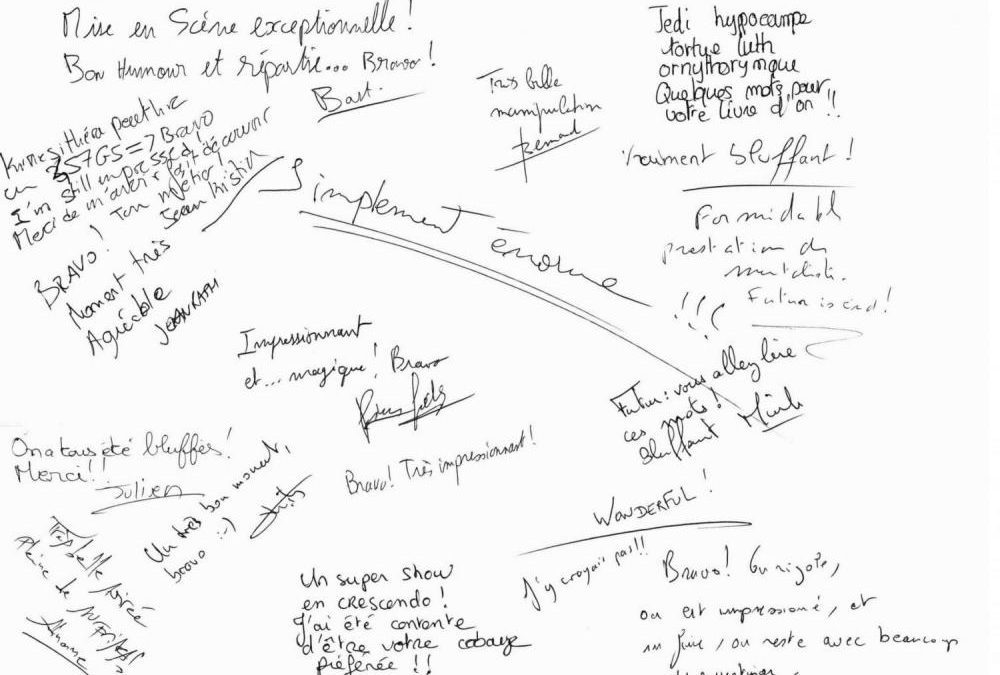 Mise en Scène exceptionnelle !
Bon Humour et répartie... Bravo !
Bast.
Très belle
manipulation
Bernard
Jedi hypocampe
tortue luth
ornythorymque
Quelques mots pour
votre livre d'or !!
Vraiment bluffant !
Formidabl
prestation du
mentaliste.
Futur is end !
Kinésithérapeuthe
un 357GS => Bravo
I'm still impressed !
Merci de m'avoir fait découvrir
Ton métier !
Jean
BRAVO !
Moment très
Agréable
Simplement énorme
!!!
Impressionnant
et... magique ! Bravo
Futur : vous allez lire
ces mots !
bluffant
On a tous été bluffés !
Merci !!
Julien
Un très bon moment,
bravo :-)
Bravo ! Très impressionnant !
WONDERFUL !
J'y croyais pas !!
Très belle soirée
pleine de surprises !
Un super show
en crescendo !
J'ai été contente
d'être votre cobaye
préférée !!
Bravo ! On rigole,
on est impressioné, et
in fine, on reste avec beaucoup